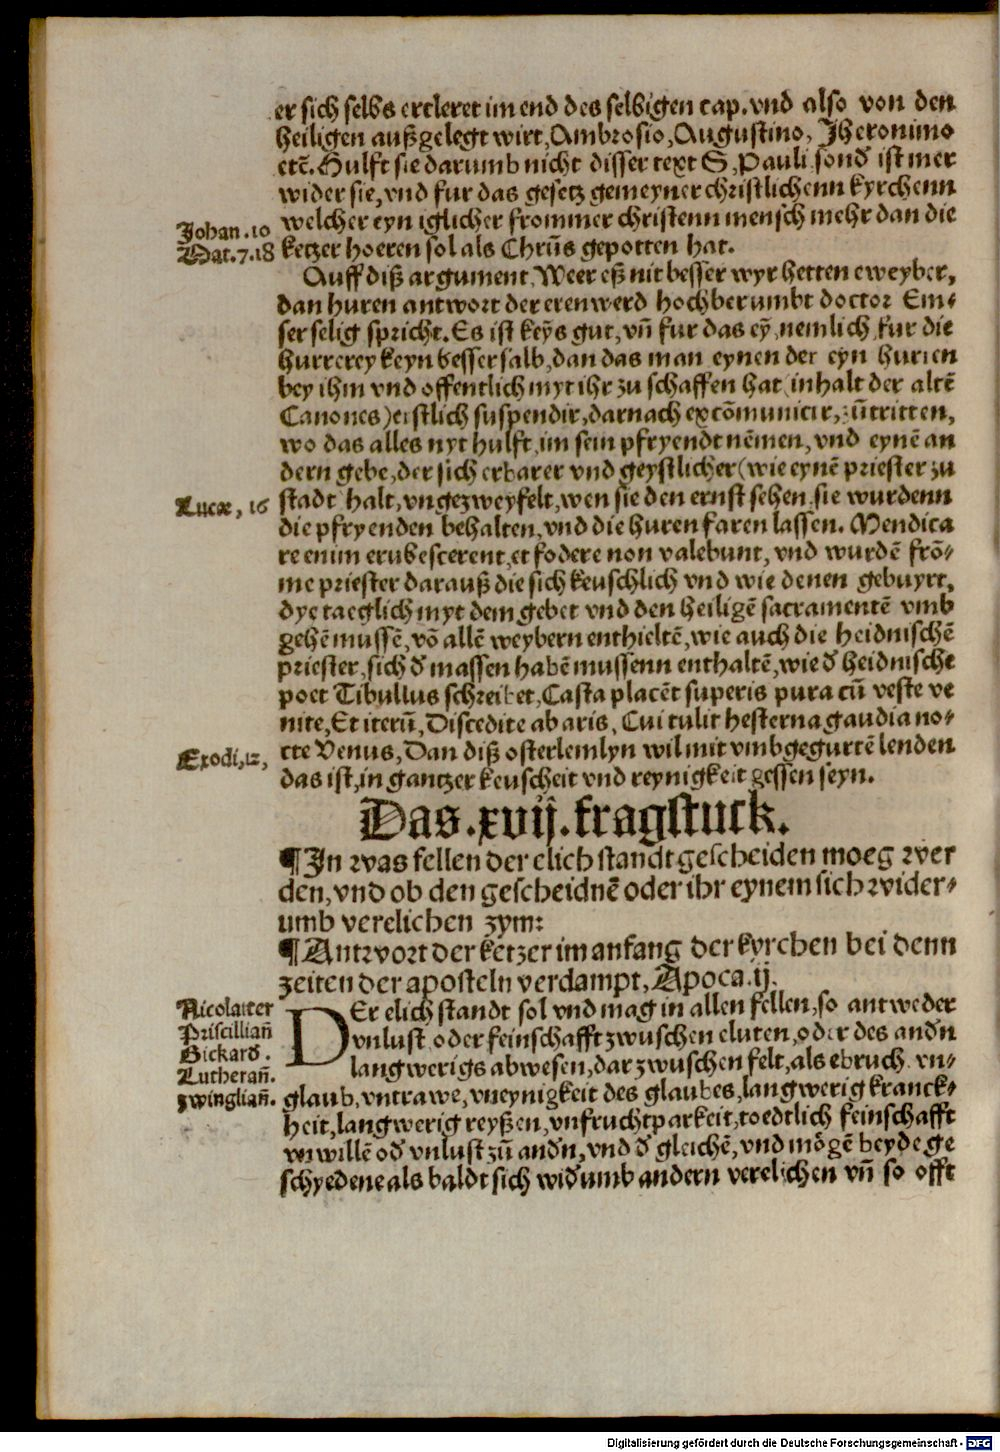 er sich selbs ercleret im end des selbigen cap. vnd also von den
heiligen außgelegt wirt, Ambrosio, Augustino, Jheronimo
etc̃. Hulfft sie darumb nicht disser text S, Pauli sond ist mer
wider sie, vnd fur das gesetz gemeyner christlichenn kyrchenn
Johan.10 welcher eyn iglicher frommer christenn mensch mehr dan die
Mat.7.18 ketzer hoeren sol als Chrūs gepotten hat.
Auff diß argument, Weer eß nit besser wyr hetten eweyber,
dan huren antwort der erenwerd hochberumbt doctor Em⸗
ser selig spricht. Es ist keȳs gut, vn̄ fur das eȳ, nemlich fur die
hurrerey keyn besser salb, dan das man eynen der eyn hurren
bey ihm vnd offentlich myt ihr zu schaffen hat (inhalt der altē
Canones) erstlich suspendir, darnach excōmunicir, zū tritten,
wo das alles nyt hulft, im sein pfryendt nēmen, vnd eynē an
dern gebe, der sich erbarer vnd geystlicher (wie eynē priester zu
Lucæ, 16 stadt halt, vngezweyfelt, wen sie den ernst sehen, sie wurdenn
die pfryenden behalten, vnd die huren faren lassen. Mendica
re enim erubescerent, et fodere non valebunt, vnd wurdē frō⸗
me priester darauß die sich keuschlich vnd wie denen gebuyrt,
dye taeglich myt dem gebet vnd den heiligē sacramentē vmb
gehē mussē, vō allē weybern enthieltē, wie auch die heidnischē
priester, sich đ massen habē mussenn enthaltē, wie đ heidnische
poet Tibullus schreibet, Casta placēt superis pura cū veste ve
nite, Et iterū, Discedite ab aris, Cui tulit hesterna gaudia no⸗
Exodi,12, cte Venus, Dan diß osterlemlyn wil mit vmbgegurtē lenden
das ist, in gantzer keuscheit vnd reynigkeit gessen seyn.
Das .xvij. fragstuck.
¶ In was fellen der elich standt gescheiden moeg wer
den, vnd ob den gescheidnē oder ihr eynem sich wider⸗
umb verelichen zym:
¶ Antwort der ketzer im anfang der kyrchen bei denn
zeiten der aposteln verdampt, Apoca.ij.
Nicolaiter
Priscillian̄
Bickard.
Lutheran̄.
zwinglian̄.
DEr elich standt sol vnd mag in allen fellen, so antweder
vnlust oder feinschafft zwuschen eluten, oder des andn
langwerigs abwesen, dar zwuschen felt, als ebruch vn⸗
glaub, vntrawe, vneynigkeit des glaubes, langwerig kranck⸗
heit, langwerig reyßen, vnfruchtparkeit, toedtlich feinschafft
vnwillē od vnlust zū andn, vnd đ gleichē, vnd mögē beyde ge
schyedene als baldt sich widumb andern verelichen vn̄ so offt
Digitalisierung gefördert durch die Deutsche Forschungsgemeinschaft - DFG